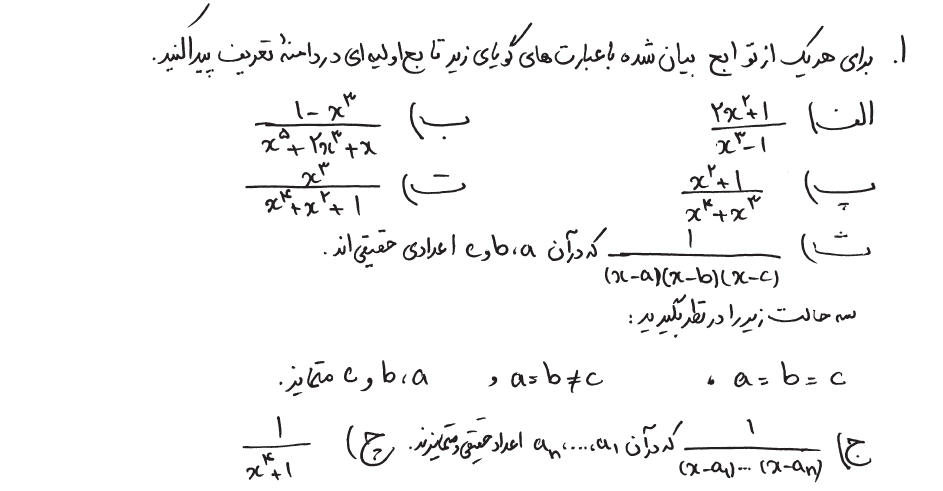 ۱. برای هر یک از توابع بیان شده با عبارت های گویای زیر تابع اولیه ای در دامنهٔ تعریف پیدا کنید.
الف) (۲x^۲+۱)/(x^۳-۱)  ب) (۱-x^۳)/(x^۵+۲x^۳+x)
پ) (x^۲+۱)/(x^۴+x^۳)  ت) x^۳/(x^۴+x^۲+۱)
ث) ۱/((x-a)(x-b)(x-c)) که در آن a، b و c اعدادی حقیقی اند.
سه حالت زیر را در نظر بگیرید:
a=b=c ، a=b≠c و a، b و c متمایز.
ج) ۱/((x-a₁)...(x-aₙ)) که در آن a₁،...،aₙ اعداد حقیقی و متمایزند. چ) ۱/(x^۴+۱)